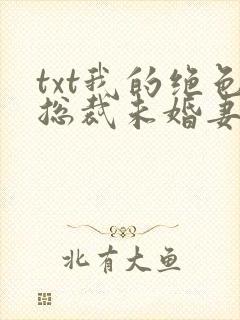 txt我的绝色
总裁未婚妻
北有大鱼